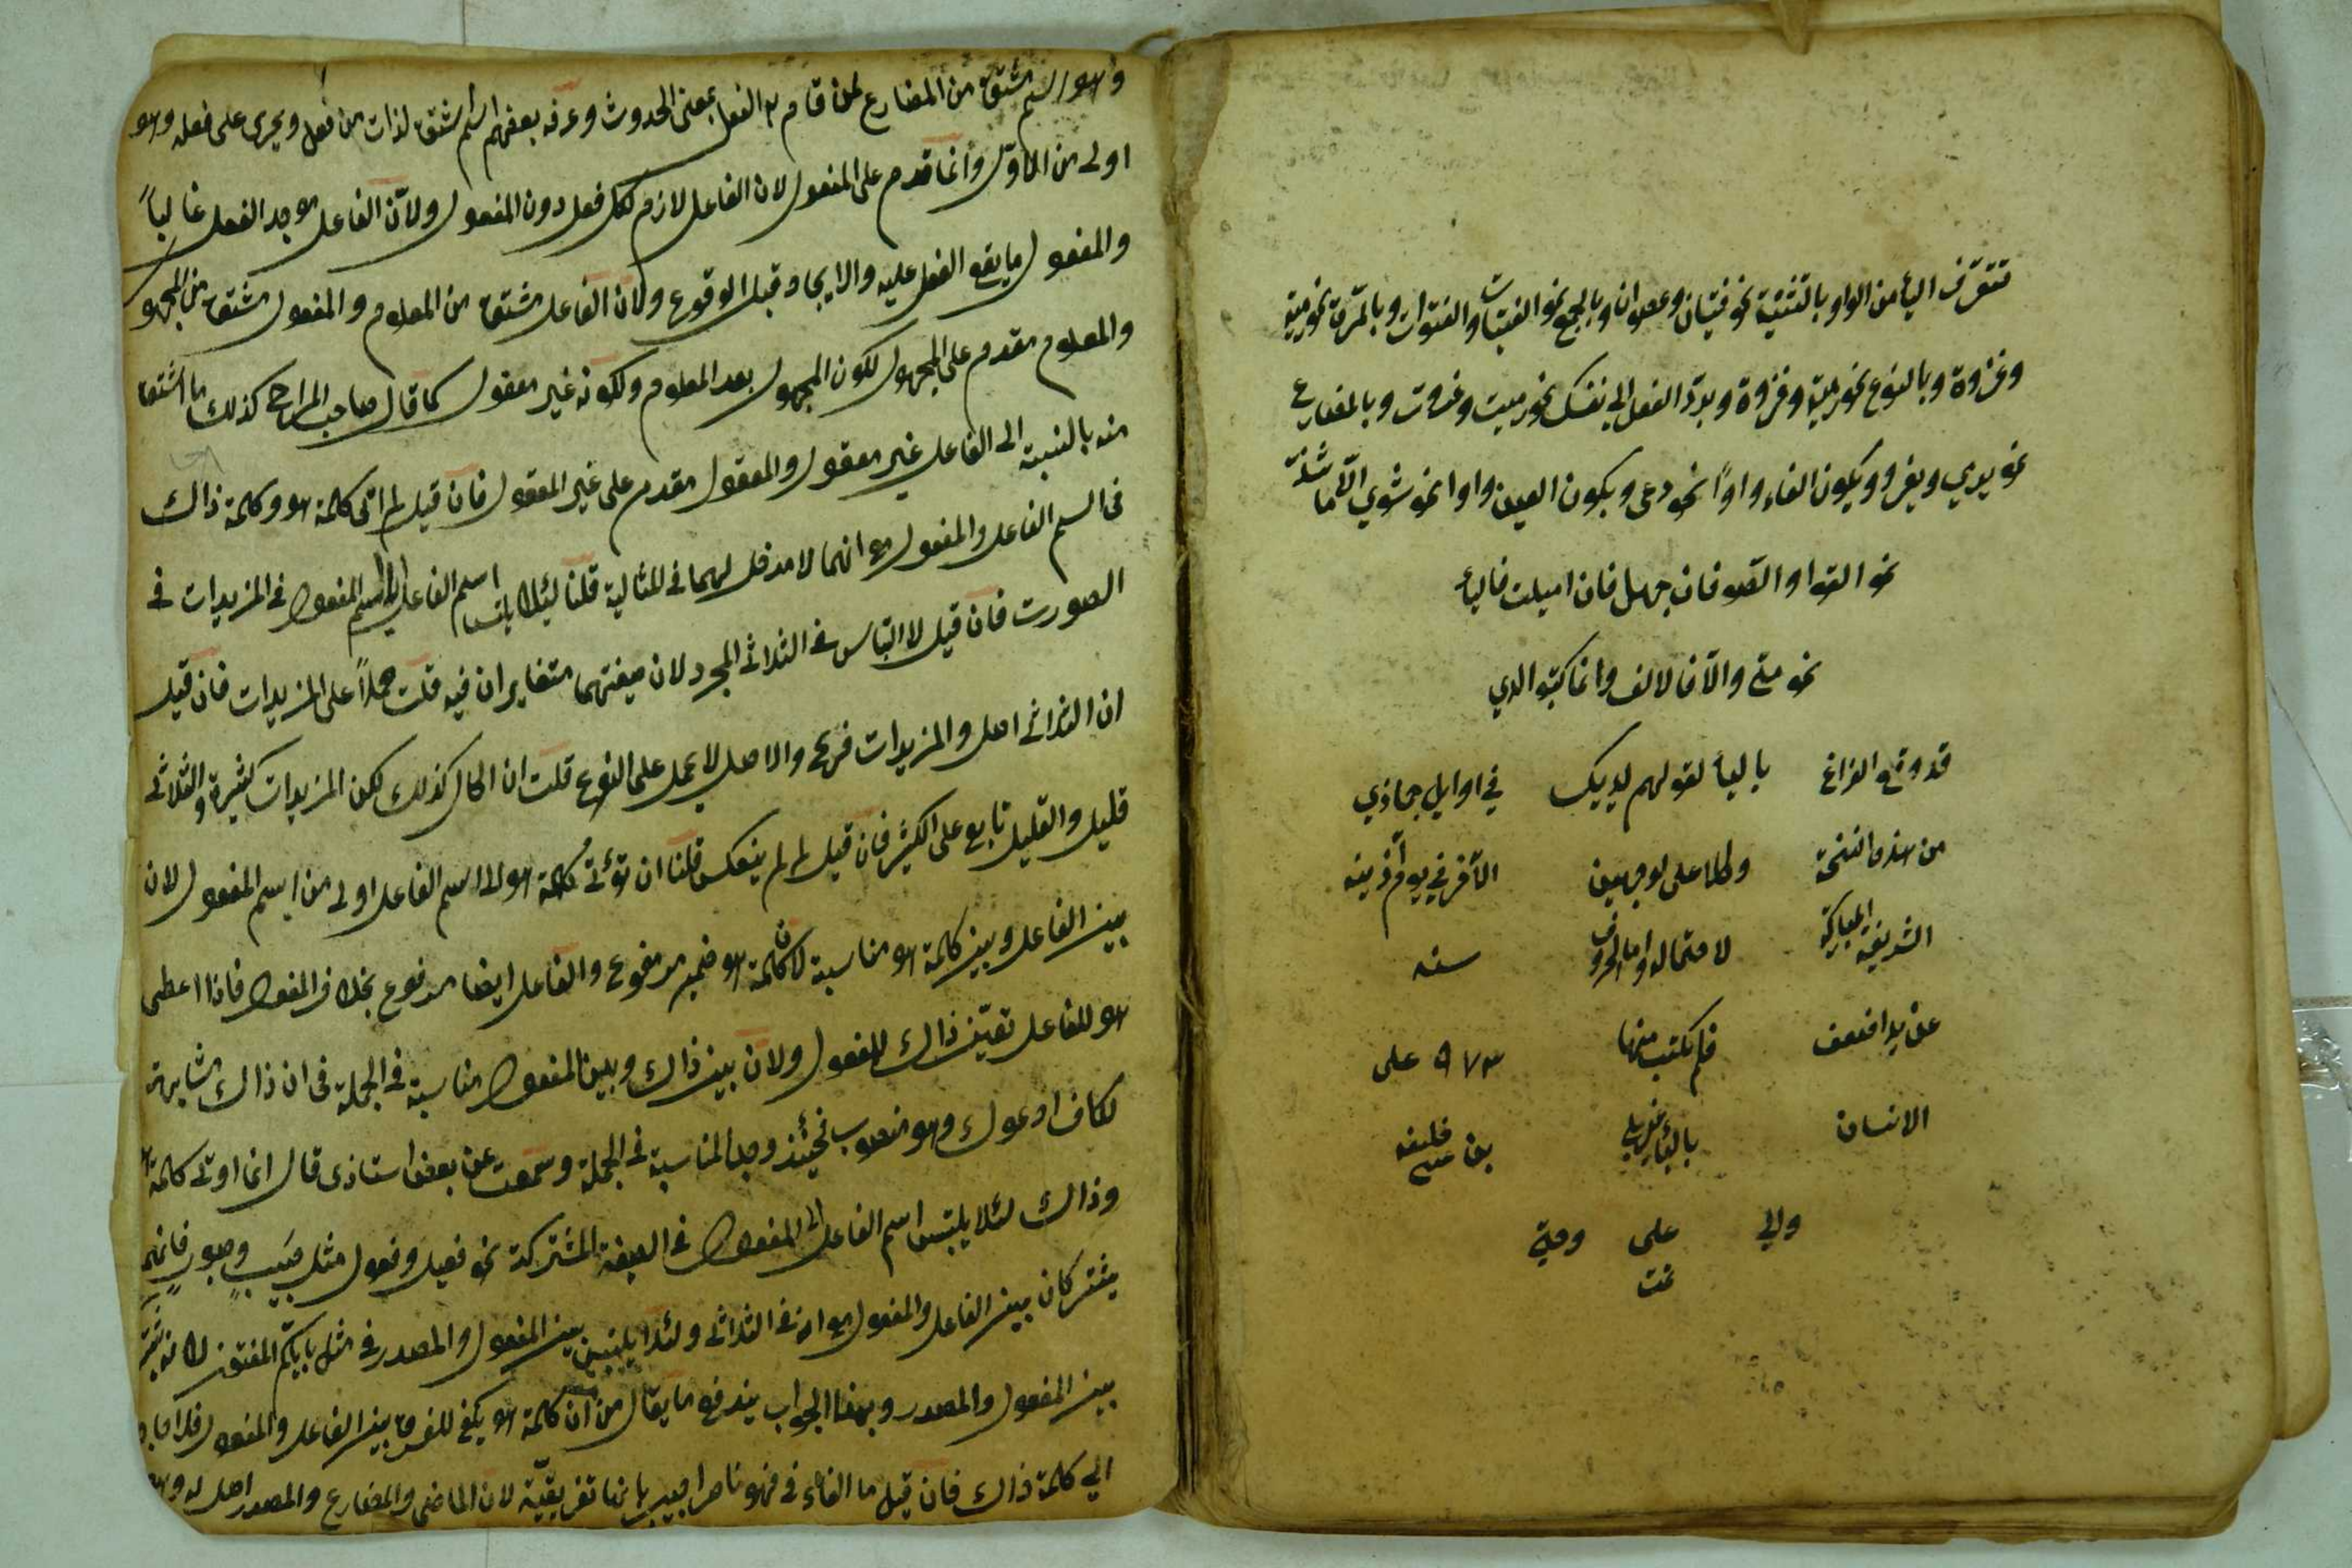 تتعرف الياء من الواو بالتثنية نحو فتيان وعصوان وبالجمع نحو الفتيات والفتوات وبالمرة نحو رمية
وغزوة وبالنوع نحو رمية وغزوة وبرد الفعل الى نفسك نحو رميت وغزوت وبالمضارع
نحو يرمي ويغزو وبكون الفاء واوا نحو وعى وبكون العين واوا نحو شوي الا ما شذ
نحو القوا والصو فان جهل فان اميلت فالياء
نحو متى والا فالالف وانما كتبوا لدي
قد وقع الفراغ بالياء لقولهم لديك في اوايل جماذي
من هذه النسخة وكلا على لوجهين الآخر في يوم آذينه
الشريفة المباركة لاحتماله واما الحروف سنه
عن يد اضعف فلم يكتب منها ٩٧٣ على
الانسان بالياء غير بلى بن خليفه
والى على وحتى
تمت
وهو اسم مشتق من المضارع لمن قام به الفعل بمعنى الحدوث وعرفه بعضهم اسم اشتق لذات من فعل ويجرى على فعله وهو
اولى من الاول وانما قدم على المفعول لان الفاعل لازم لكل فعل دون المفعول ولان الفاعل موجد الفعل غالباً
والمفعول ما يقع الفعل عليه والايجاد قبل الوقوع ولان الفاعل مشتق من المعلوم والمفعول مشتق من المجهول
والمعلوم مقدم على المجهول لكون المجهول بعد المعلوم ولكونه غير معقول كما قال صاحب المراح كذلك ما اشتق
منه بالنسبة الى الفاعل غير معقول والمعقول مقدم على غير المعقول فان قيل لم اتى كلمة هو وكلمة ذاك
فى اسم الفاعل والمفعول مع انهما لا مدخل لهما فى المثالية قلنا لئلا يلتبس اسم الفاعل الى اسم المفعول فى المزيدات فى
الصورت فان قيل لا التباس فى الثلاثى المجرد لان صيغتهما متغايران فيه قلت حملاً على المزيدات فان قيل
ان الثلاثى اصل والمزيدات فرع والاصل لا يحمل على الفرع قلت ان الحال كذلك لكن المزيدات كثيرة والثلاثى
قليل والقليل تابع على الكثير فان قيل لم لم ينعكس قلنا ان توتى كلمة هو الى اسم الفاعل اولى من اسم المفعول لان
بين الفاعل وبين كلمة هو مناسبة لان كلمة هو ضمير مرفوع والفاعل ايضا مرفوع بخلاف المفعول فاذا اعطى
هو للفاعل تعيّن ذاك للمفعول ولان بين ذاك وبين المفعول مناسبة فى الجملة فى ان ذاك مشابهة
لكاف ادعوك وهو منصوب فحينئذ وجد المناسبة فى الجملة وسمعت عن بعض استاذى قال انما اوتى كلمة هو
وذاك لئلا يلتبس اسم الفاعل الى المفعول فى الصيغة المشتركة نحو فعيل وفعول مثل حبيب وصبور فانهما
يشتركان بين الفاعل والمفعول مع انه فى الثلاثى ولئلا يلتبس بين المفعول والمصدر فى مثل باييكم المفتون لانه يشترك
بين المفعول والمصدر وبهذا الجواب يندفع ما يقال من ان كلمة هو يكفى للفرق بين الفاعل والمفعول فلا حاجة
الى كلمة ذاك فان قيل ما الفاء فى فهو ناصر اجيب بانها تفريقيّة لان الماضى والمضارع والمصدر اصل له وهو